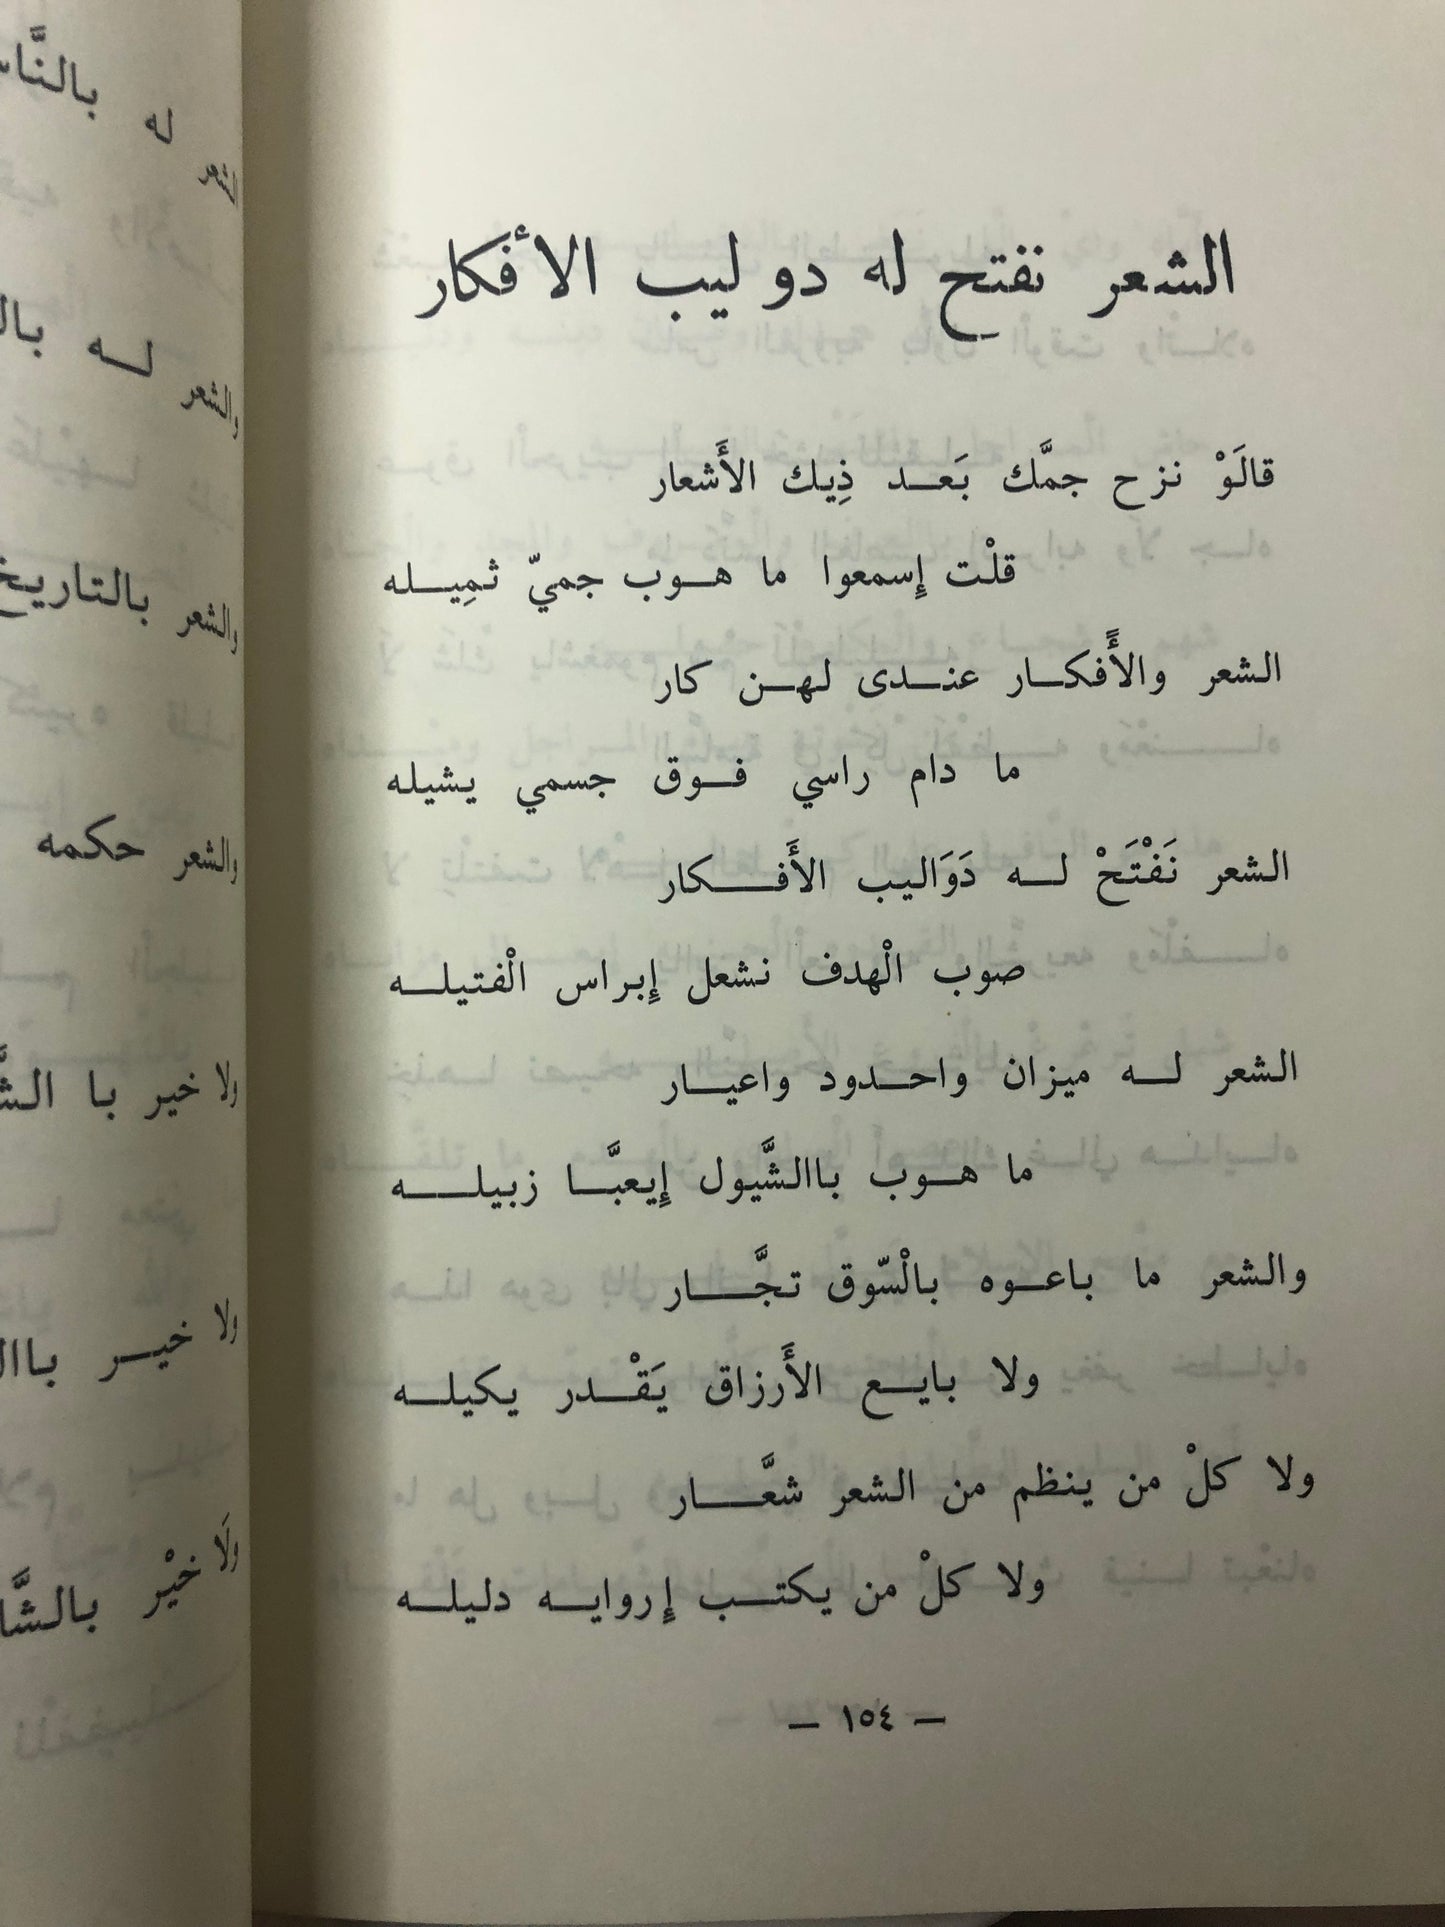 الشعر نفتح له دو ليب الأفكار
قالَوْ نزح جمَّك بَعد ذِيك الأَشعار
قلْت إِسمعوا ما هوب جميّ ثمِيله
الشعر والأَفكار عندى لهن كار
ما دام راسي فوق جسمي يشيله
الشعر نَفْتَحْ له دَوَاليب الأَفكار
صوب الْهدف نشعل إِبراس الْفتيله
الشعر له ميزان واحدود واعيار
ما هوب باالشَّيول إِيعبَّا زبيله
والشعر ما باعوه بالْسّوق تجَّار
ولا بايع الأَرزاق يَقْدر يكيله
ولا كلْ من ينظم من الشعر شعَّار
ولا كلْ من يكتب إِروايه دليله
— ١٥٤ —
ما
والشعر ما
والشعر بالتاريخ
والشعر حكمه
ولا خير با
ولا خير
ولَا خيْر